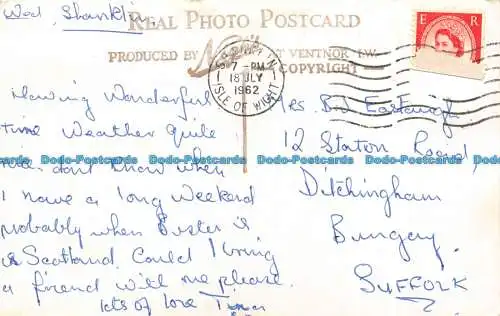 Wed, Shanklin.
REAL PHOTO POSTCARD
PRODUCED BY Nigh AT VENTNOR I.W.
COPYRIGHT
E R
7-PM
18 JLY
1962
ISLE OF WIGHT
Having Wonderful
time Weather quite
nice. don't know when
I have a long weekend
probably when is
in Scotland. Could I bring
a friend with me please.
lots of love
Mrs.
12 Station Road,
Ditchingham
Bungay,
SUFFOLK
Dodo-Postcards Dodo-Postcards Dodo-Postcards Dodo-Postcards